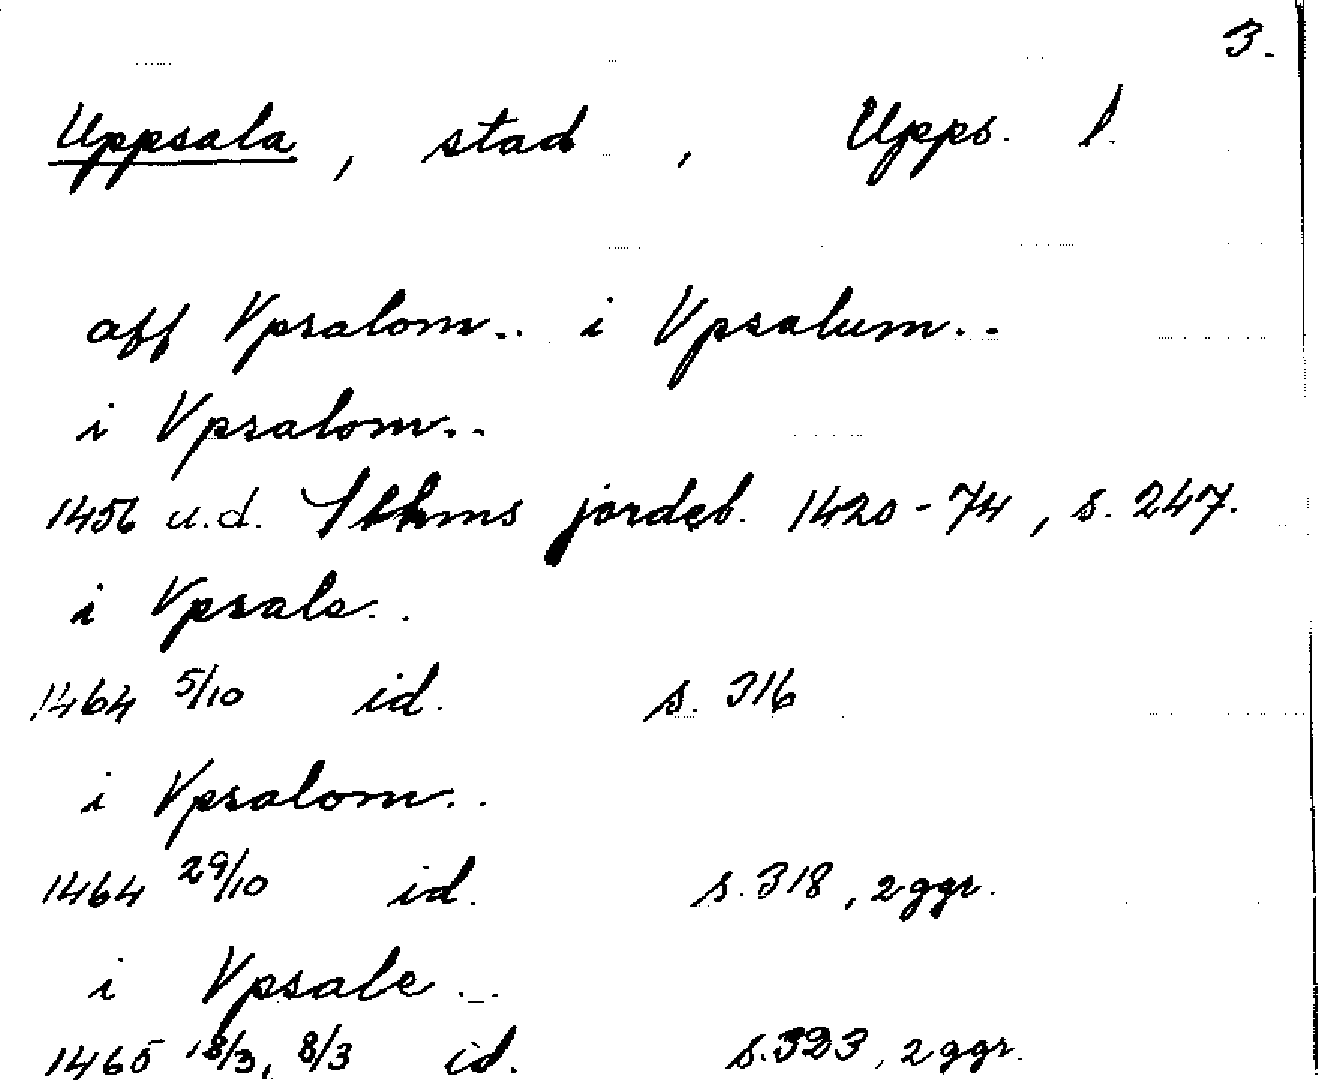 3.
Uppsala, stad, Upps. l.
aff Vpsalom.. i Vpsalum..
i Vpsalom..
1456 u.d. Sthms jordeb. 1420-74, s. 247.
i Vpsale..
1464 5/10 id. s. 316
i Vpsalom..
1464 29/10 id. s. 318, 2 ggr.
i Vpsale...
1465 18/3, 8/3 id. s. 323, 2 ggr.